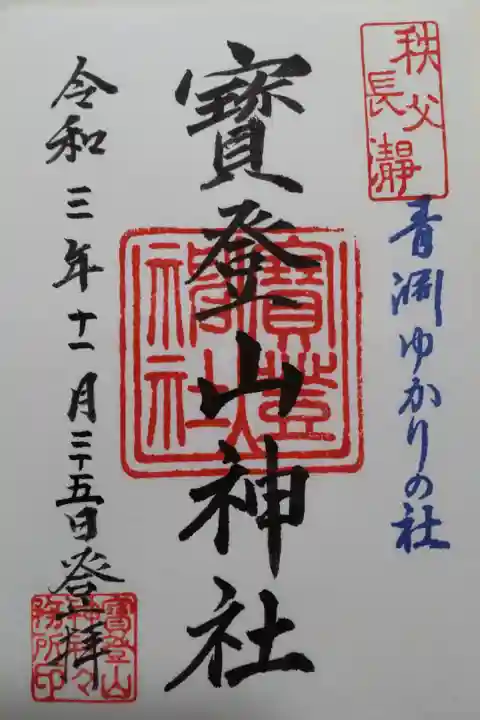 秩父
長瀞
青淵ゆかりの社
寳登山神社
令和三年十一月二十五日登拝
寳登山
神社々
務所印